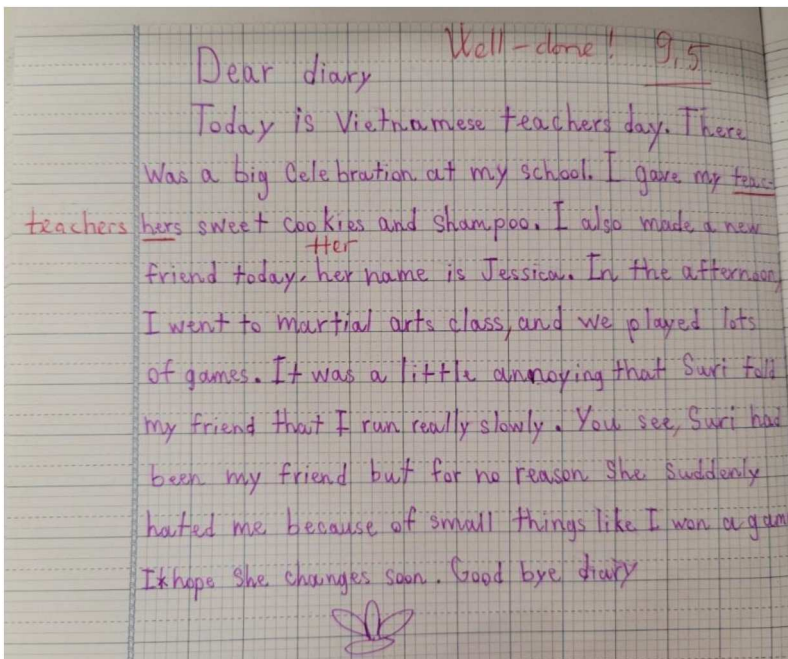 Well-done! 9,5
Dear diary
Today is Vietnamese teachers day. There
Was a big Celebration at my school. I gave my teac-
teachers hers sweet cookies and shampoo. I also made a new
Her
friend today, her name is Jessica. In the afternoon,
I went to martial arts class, and we played lots
of games. It was a little annoying that Suri told
my friend that I run really slowly. You see, Suri had
been my friend but for no reason She Suddenly
hated me because of small things like I won a gam
I hope She changes soon. Good bye diary